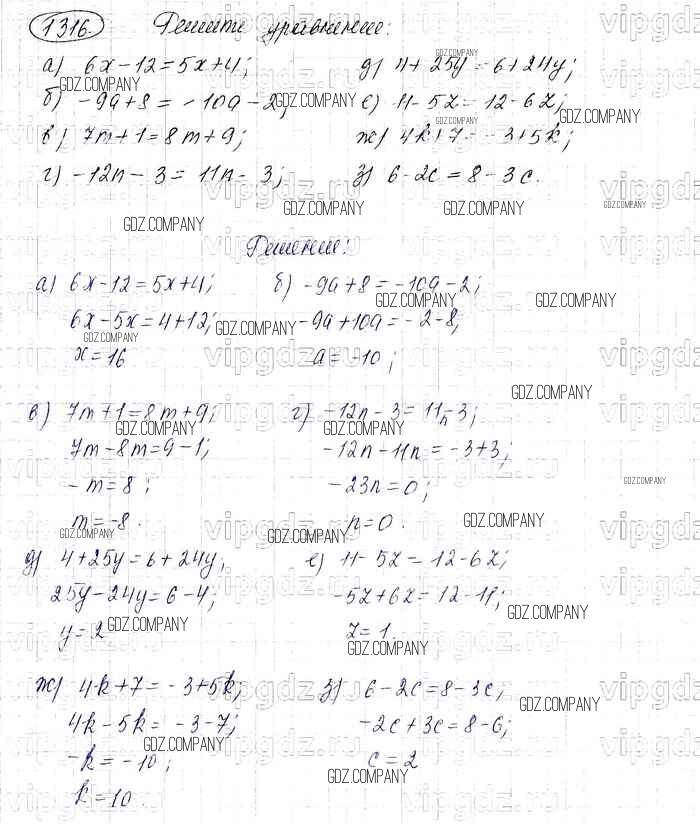 1316. Решите уравнение:
а) 6x - 12 = 5x + 4; д) 4 + 25y = 6 + 24y;
б) -9a + 8 = -10a - 2; е) 11 - 5z = 12 - 6z;
в) 7m + 1 = 8m + 9; ж) 4k + 7 = -3 + 5k;
г) -12n - 3 = 11n - 3; з) 6 - 2c = 8 - 3c.
Решение:
а) 6x - 12 = 5x + 4; б) -9a + 8 = -10a - 2;
6x - 5x = 4 + 12; -9a + 10a = -2 - 8;
x = 16 a = -10;
в) 7m + 1 = 8m + 9; г) -12n - 3 = 11n - 3;
7m - 8m = 9 - 1; -12n - 11n = -3 + 3;
-m = 8; -23n = 0;
m = -8. n = 0.
д) 4 + 25y = 6 + 24y; е) 11 - 5z = 12 - 6z;
25y - 24y = 6 - 4; -5z + 6z = 12 - 11;
y = 2 z = 1.
ж) 4k + 7 = -3 + 5k; з) 6 - 2c = 8 - 3c;
4k - 5k = -3 - 7; -2c + 3c = 8 - 6;
-k = -10; c = 2
k = 10.
vipgdz.ru
GDZ.COMPANY